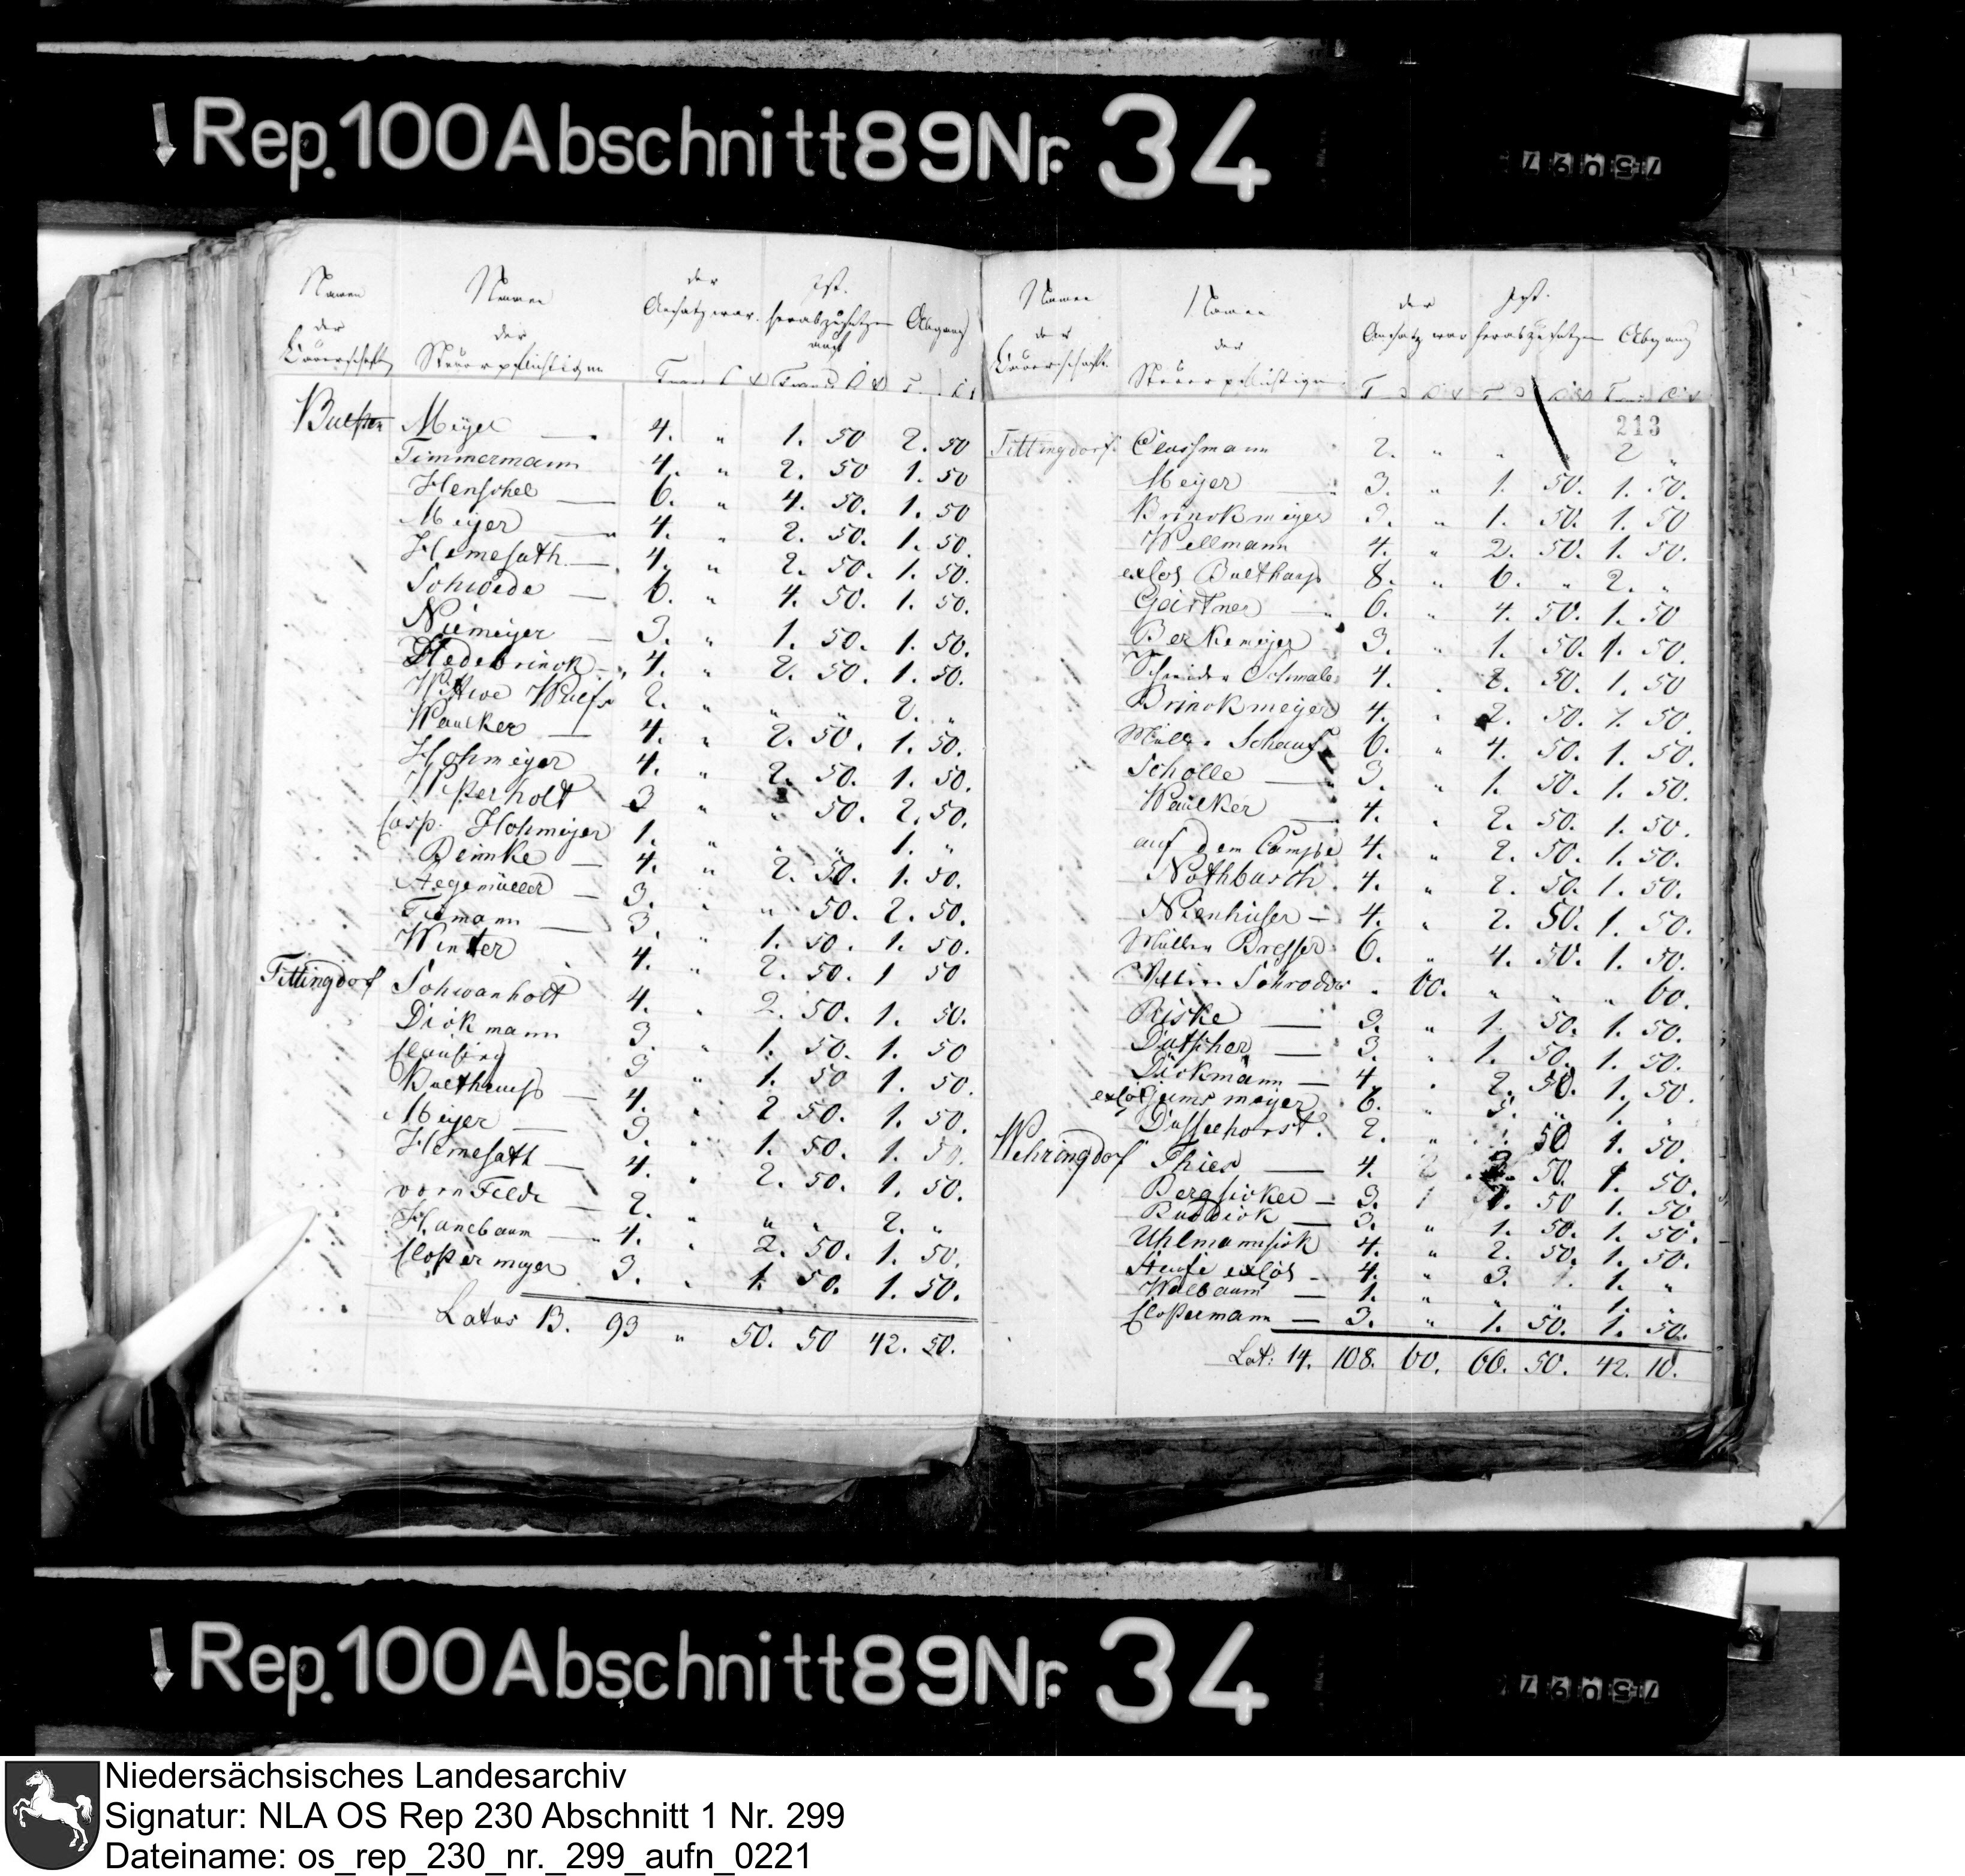 Rep. 100 Abschnitt 89 Nr. 34
Namen der Bauerschaft
Namen der Steuerpflichtigen
der Ansatz war.
Ist. herabzusetzen auf
Abgang
Buer Meyer — 4. " 1. 50 2. 50
Timmermann 4. " 2. 50 1. 50
Henschel — 6. " 4. 50. 1. 50
Meyer — 4. " 2. 50. 1. 50.
Hemesath — 4. " 2. 50. 1. 50.
Schwede — 6. " 4. 50. 1. 50.
Niemeyer — 3. " 1. 50. 1. 50.
Hedebrinck 4. " 2. 50. 1. 50.
Wittwe Wulfs 2. " " " 2. "
Waulker — 4. " 2. 50. 1. 50.
Hohmeyer 4. " 2. 50. 1. 50.
Westerholt 3 " " 50. 2. 50.
Casp. Hohmeyer 1. " " " 1. "
Reimke — 4. " 2. 50. 1. 50.
Hegemüller 3. " " 50. 2. 50.
Timann — 3. " 1. 50. 1. 50.
Winter 4. " 2. 50. 1 50
Tittingdorf Schwanholt 4. " 2. 50. 1. 50.
Dickmann 3. " 1. 50. 1. 50
Clausing 3 " 1. 50 1. 50.
Bulthaup — 4. " 2 50. 1. 50.
Meyer — 3. " 1. 50. 1. 50.
Hemesath — 4. " 2. 50. 1. 50.
vorn Felde — 2. " " " 2. "
Hanebaum — 4. " 2. 50. 1. 50.
Clostermeyer 3. " 1. 50. 1. 50.
Latus 13. 93 " 50. 50 42. 50.
Namen der Bauerschaft.
Namen der Steuerpflichtigen
der Ansatz war
Ist. herabzusetzen
Abgang
213
Tittingdorf. Clausmann 2. " " 2 "
Meyer 3. " 1. 50. 1. 50.
Brinckmeyer 3. " 1. 50. 1. 50
Wellmann 4. " 2. 50. 1. 50.
exlos Bulthaup 8. " 6. " 2. "
Gärtner — 6. " 4. 50. 1. 50
Berkemeyer 3. " 1. 50. 1. 50.
Schneider Schmale 4. " 2. 50. 1. 50
Brinckmeyer 4. " 2. 50. 1. 50.
Müller Schauf 6. " 4. 50. 1. 50.
Scholle — 3. " 1. 50. 1. 50.
Waulker — 4. " 2. 50. 1. 50.
auf dem Campe 4. " 2. 50. 1. 50.
Nothbusch. 4. " 2. 50. 1. 50.
Nienhüser — 4. " 2. 50. 1. 50.
Müller Bresser 6. " 4. 50. 1. 50.
Schroder " 60. " " " 60.
Riske — 3. " 1. 50. 1. 50.
Dütscher — 3. " 1. 50. 1. 50.
Dickmann — 4. " 2. 50. 1. 50.
exlos meyer 6. " 5. " 1. "
Dusselhorst. 2. " " 50 1. 50.
Wehringdorf Thies — 4. 2. 50. 1. 50.
Bergsicker — 3. 1. 50 1. 50
Buddick — 3. " 1. 50. 1. 50.
Uhlmannsiek 4. " 2. 50. 1. 50.
exlos — 4. " 3. 1. "
Walbaum — 1. " " " 1. "
Clostermann — 3. " 1. 50. 1. 50.
Lat: 14. 108. 60. 66. 50. 42. 10.
Rep. 100 Abschnitt 89 Nr. 34
Niedersächsisches Landesarchiv
Signatur: NLA OS Rep 230 Abschnitt 1 Nr. 299
Dateiname: os_rep_230_nr._299_aufn_0221